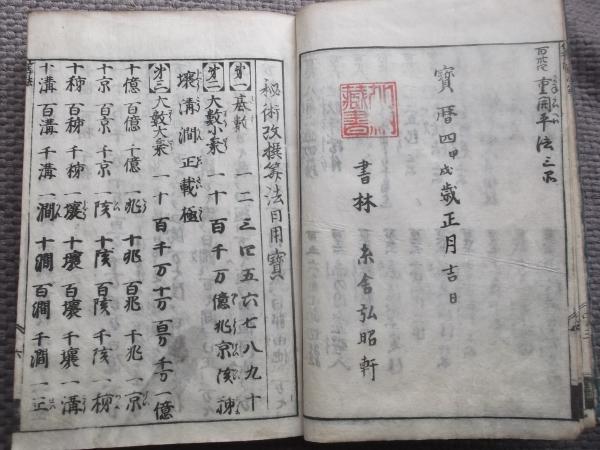 重用平法三不
寳暦四甲戌歳正月吉日
書林 糸舎弘昭軒
藏書
秘術改撰算法日用寳
第一 基数 一二三四五六七八九十
第二 大数小乗 一十百千万億兆京垓秭
壌溝澗正載極
第三 大数大乗 一十百千万十万百万千万一億
十億百億千億一兆十兆百兆千兆一京
十京百京千京一垓十垓百垓千垓一秭
十秭百秭千秭一壌十壌百壌千壌一溝
十溝百溝千溝一澗十澗百澗千澗一正